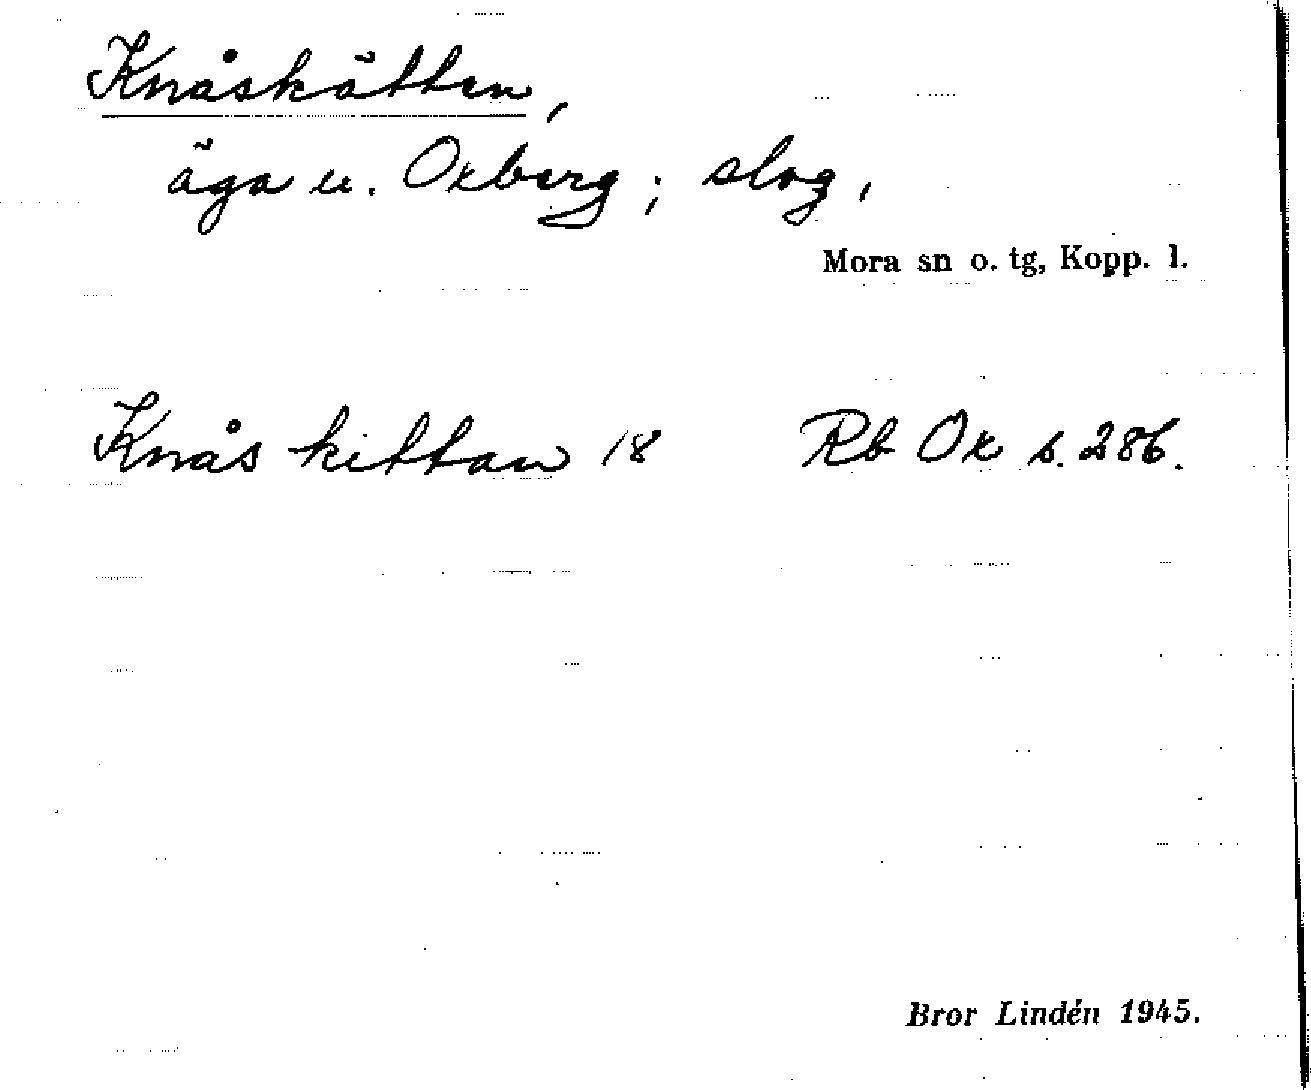 Knåskätten,
äga u. Oxberg; slog,
Mora sn o. tg, Kopp. l.
Knås kittan 18 Rb Ox s. 286.
Bror Lindén 1945.